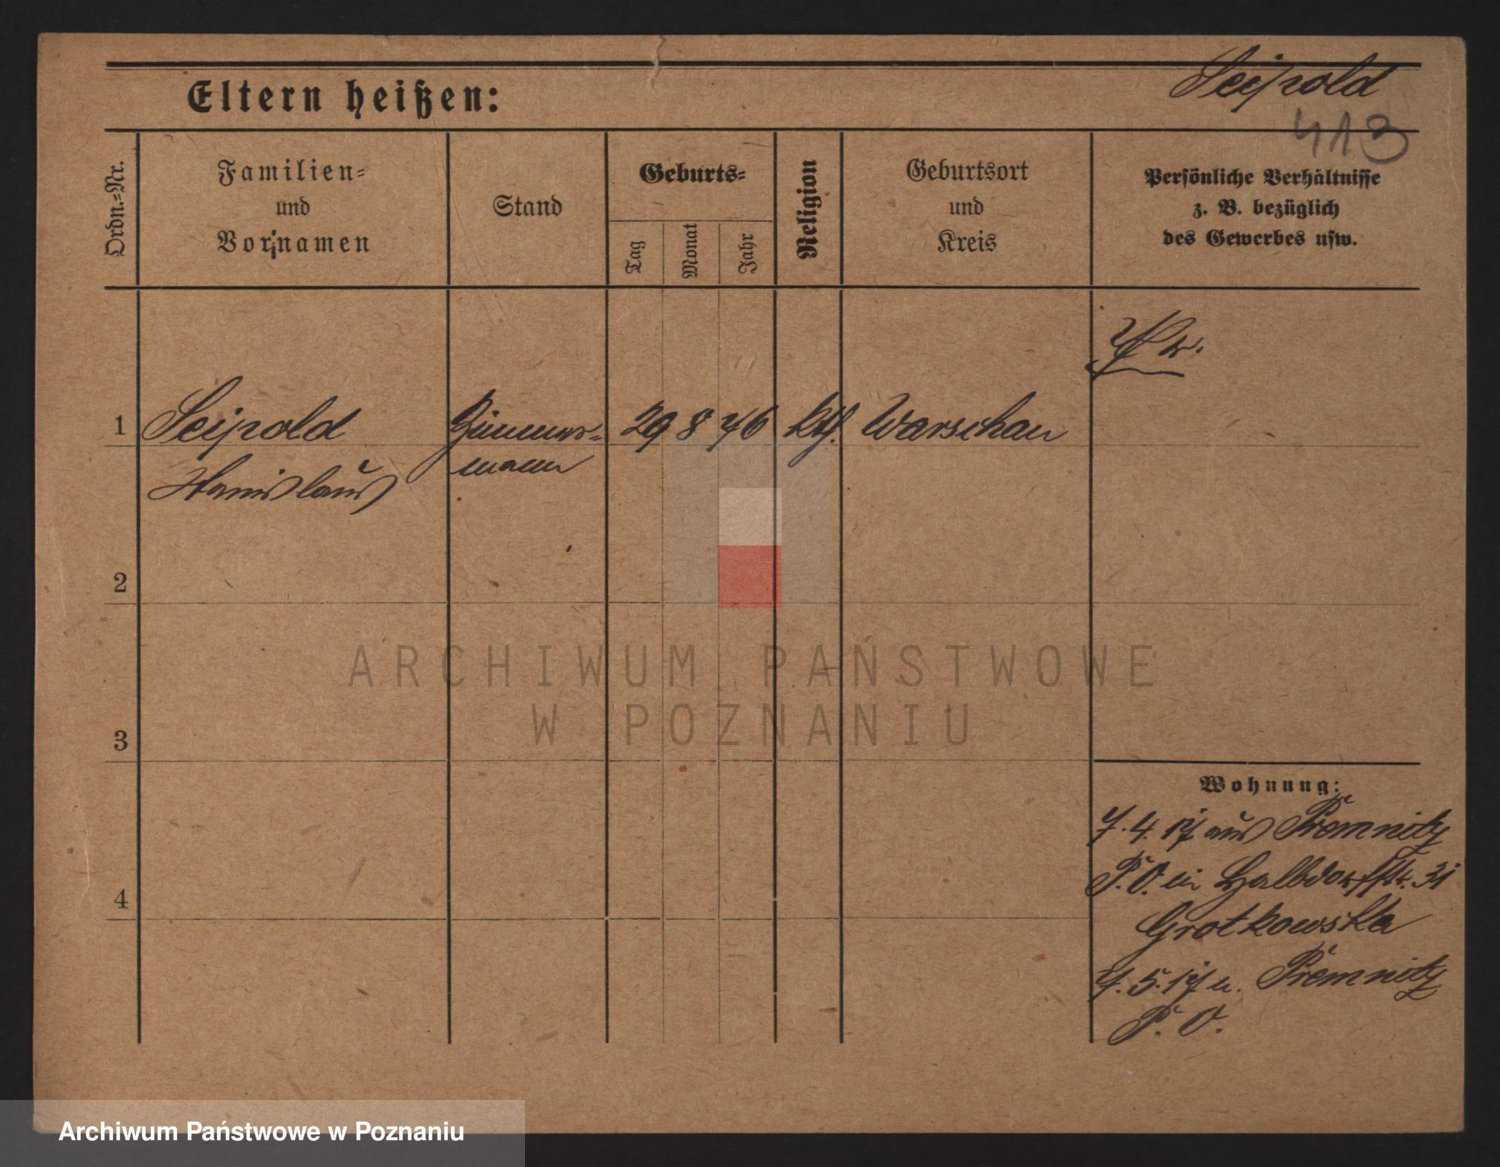 Eltern heißen:
Seipold
413
Ordn.-Nr.
Familien-
und
Vornamen
Stand
Geburts-
Tag
Monat
Jahr
Religion
Geburtsort
und
Kreis
Persönliche Verhältnisse
z. B. bezüglich
des Gewerbes usw.
1
Seipold
Stanislaus
Zimmer-
mann
29 8 76
kth.
Warschau
2
3
4
Wohnung:
7. 4. 17 aus Premnitz
P. O. in Halbdorfstr. 31
Grotkowska
7. 5. 17 n. Premnitz
P. O.
ARCHIWUM PAŃSTWOWE
W POZNANIU
Archiwum Państwowe w Poznaniu